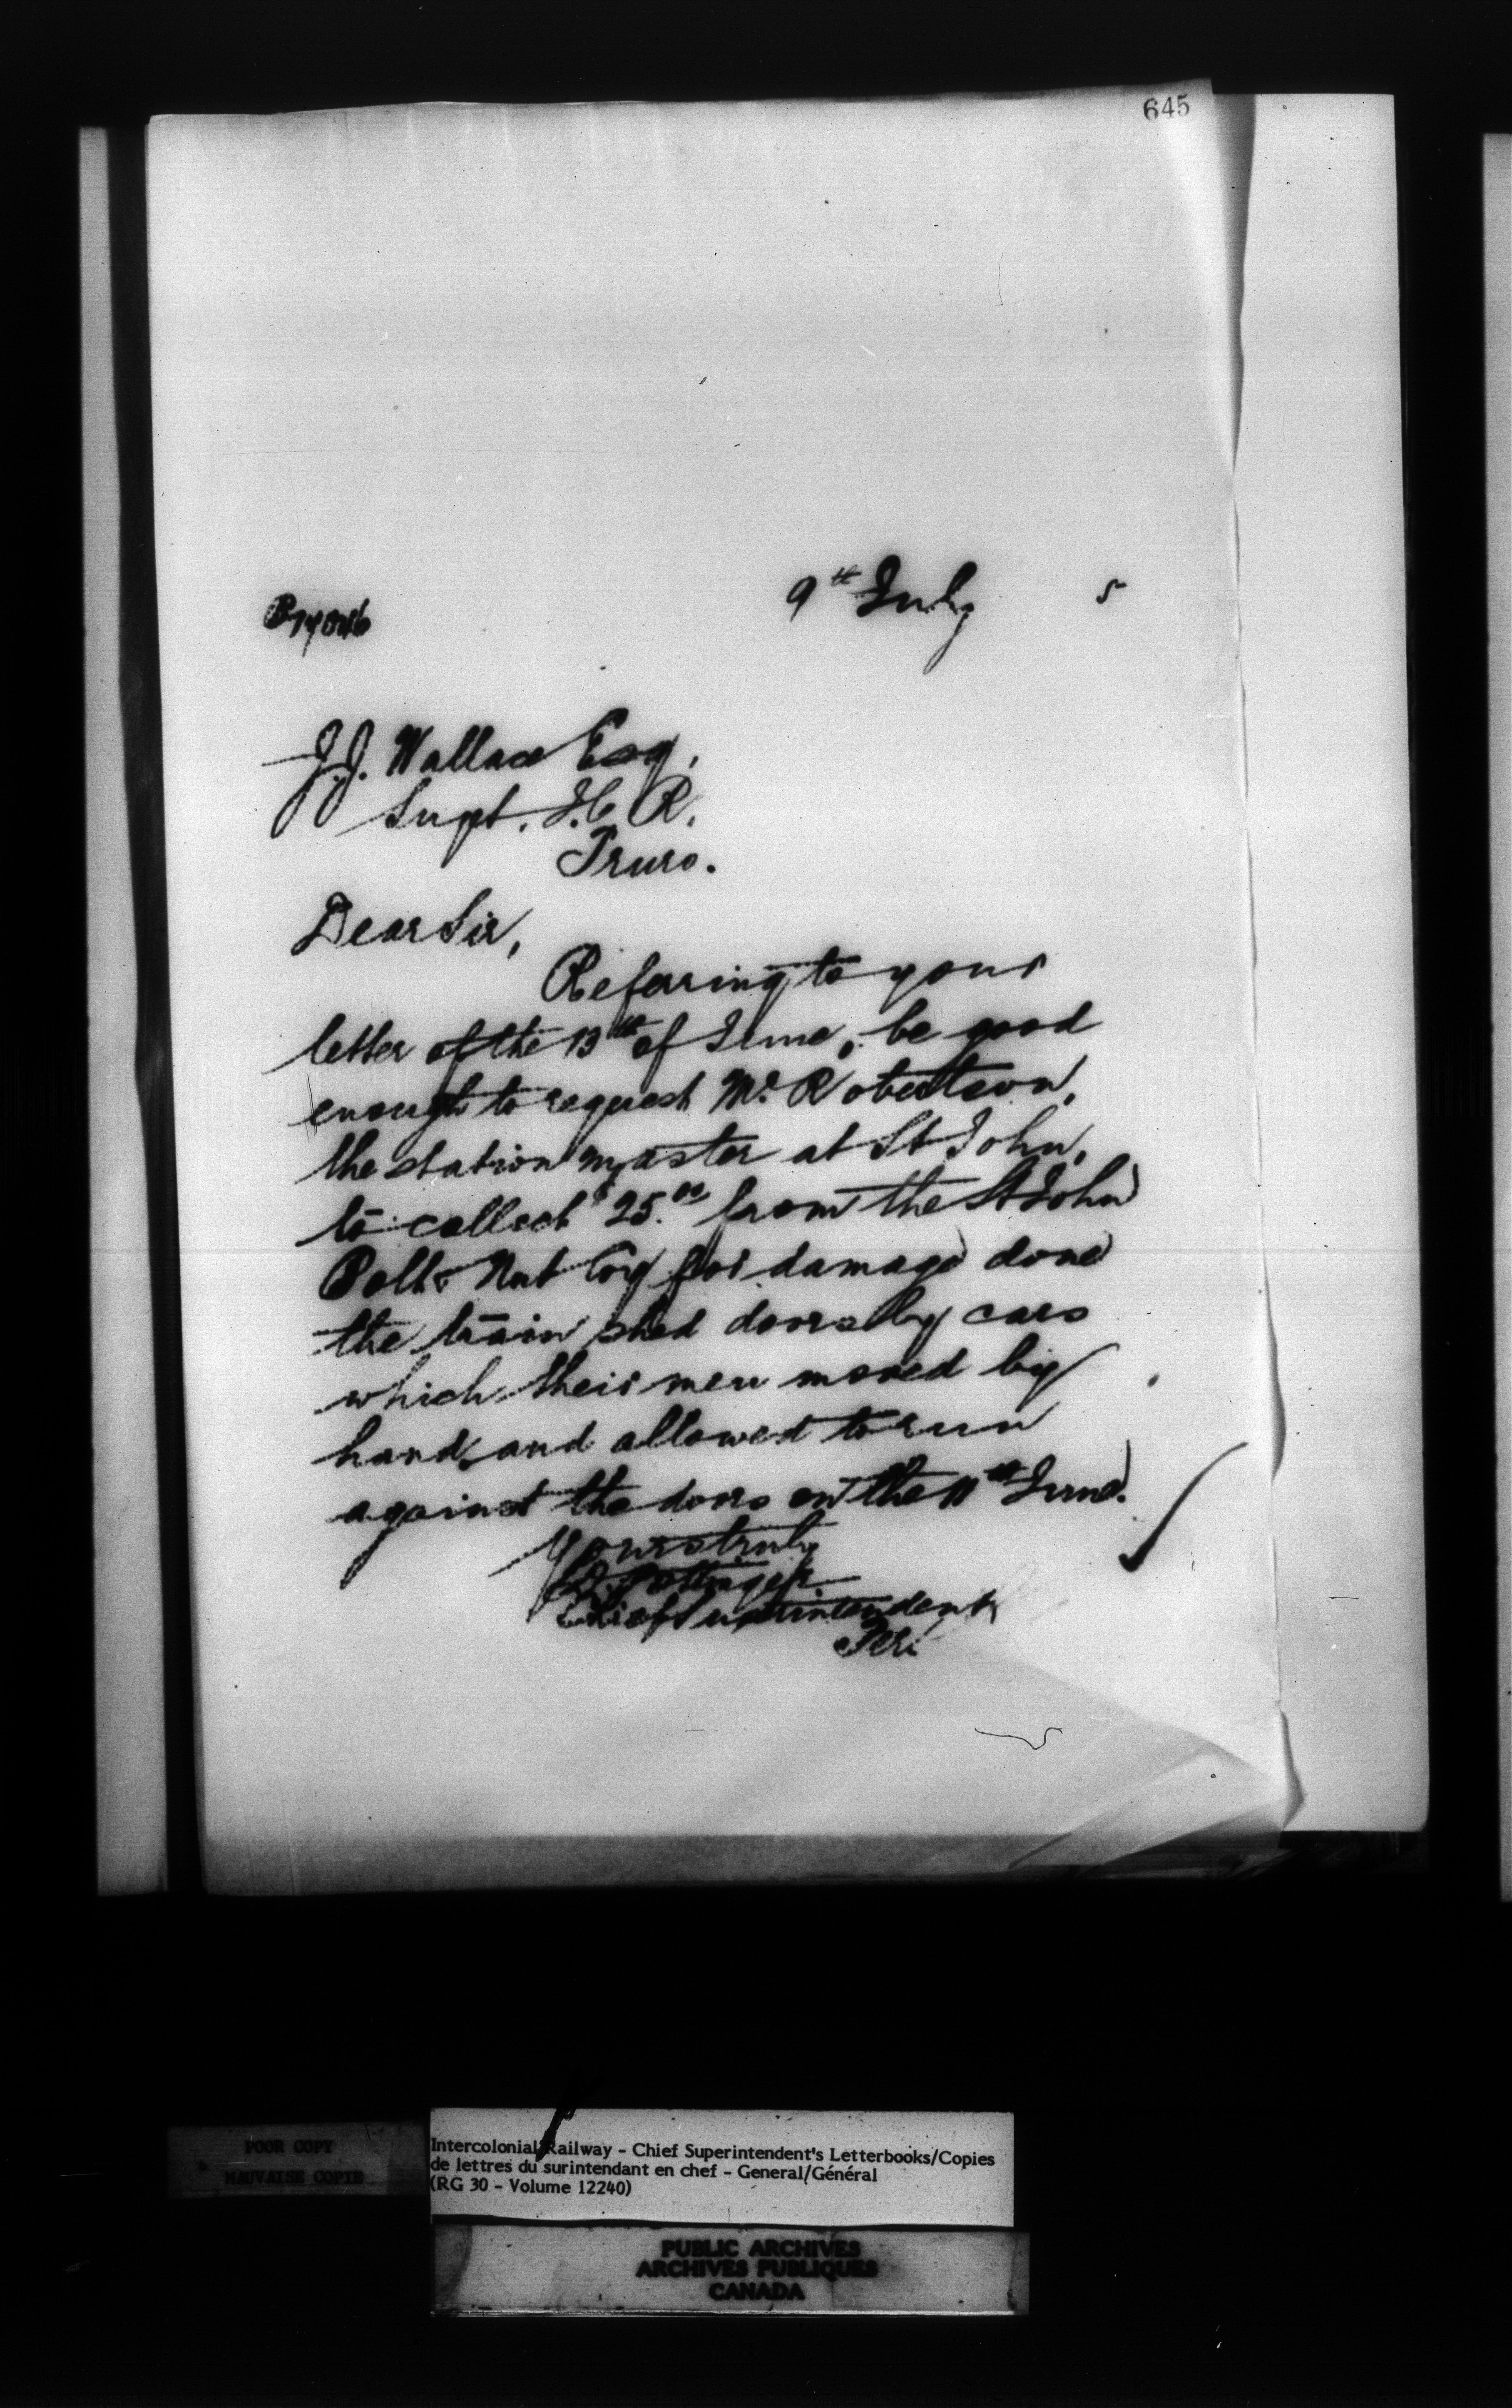 645
9th July 5
J.J. Wallace Esq,
Supt. I.C.R.
Truro.
Dear Sir,
Referring to your
letter of the 13th of June, be good
enough to request Mr. Robertson,
the station master at St John,
to collect $25.00 from the St John
Bolt & Nut Coy for damage done
the train shed doors by cars
which their men moved by
hand, and allowed to run
against the doors on the 11th June.
Yours truly
D. Pottinger
Chief Superintendent
POOR COPY
MAUVAISE COPIE
Intercolonial Railway - Chief Superintendent's Letterbooks/Copies
de lettres du surintendant en chef - General/Général
(RG 30 - Volume 12240)
PUBLIC ARCHIVES
ARCHIVES PUBLIQUES
CANADA